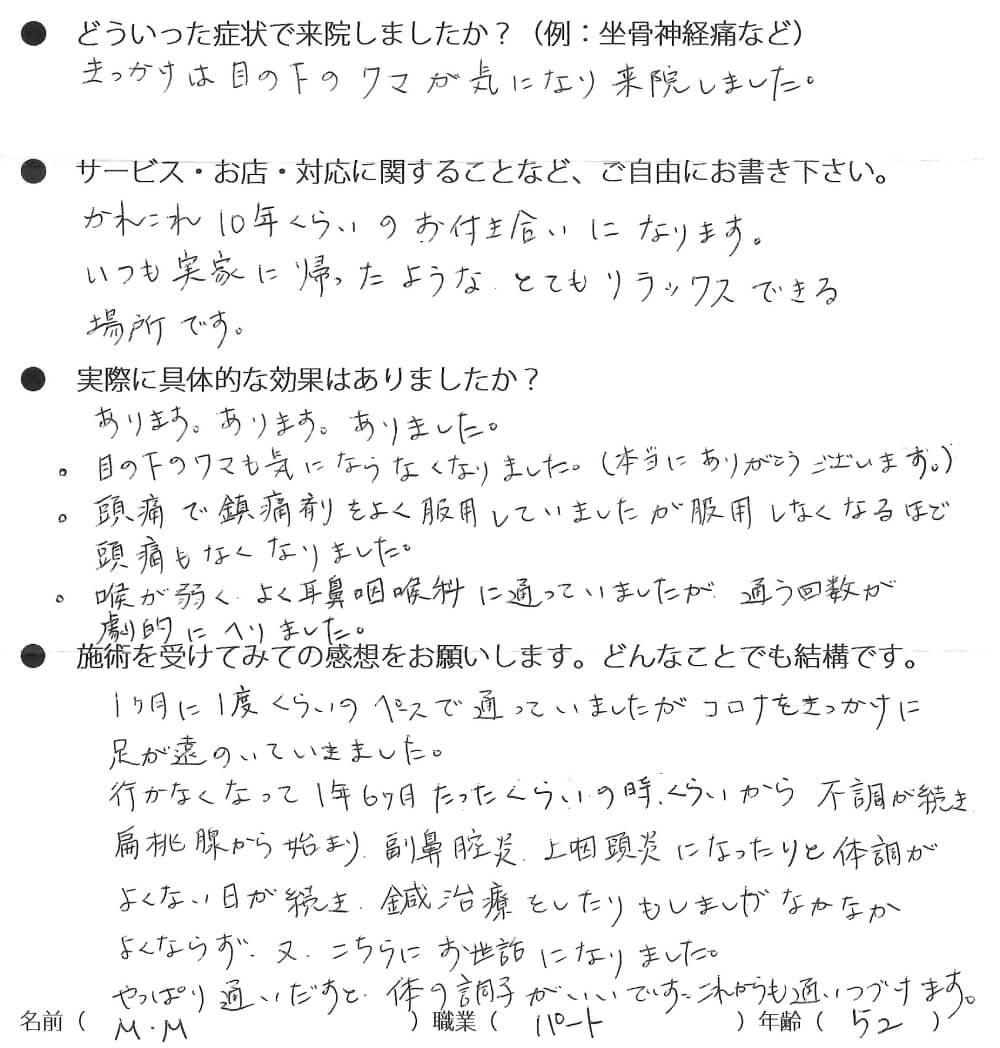 ● どういった症状で来院しましたか？（例：坐骨神経痛など）
きっかけは目の下のクマが気になり来院しました。
● サービス・お店・対応に関することなど、ご自由にお書き下さい。
かれこれ10年くらいのお付き合いになります。
いつも実家に帰ったような とてもリラックスできる
場所です。
● 実際に具体的な効果はありましたか？
あります。あります。ありました。
。目の下のクマも気にならなくなりました。（本当にありがとうございます。）
。頭痛で鎮痛剤をよく服用していましたが服用しなくなるほど
頭痛もなくなりました。
。喉が弱く、よく耳鼻咽喉科に通っていましたが、通う回数が
劇的にヘリました。
● 施術を受けてみての感想をお願いします。どんなことでも結構です。
1ヶ月に1度くらいのペースで通っていましたがコロナをきっかけに
足が遠のいていきました。
行かなくなって1年6ヶ月たったくらいの時、くらいから 不調が続き
扁桃腺から始まり、副鼻腔炎、上咽頭炎になったりと体調が
よくない日が続き、鍼治療をしたりもしましがなかなか
よくならず、又、こちらにお世話になりました。
やっぱり通いだすと、体の調子がいいです。これからも通いつづけます。
名前（ M.M ）職業（ パート ）年齢（ 52 ）